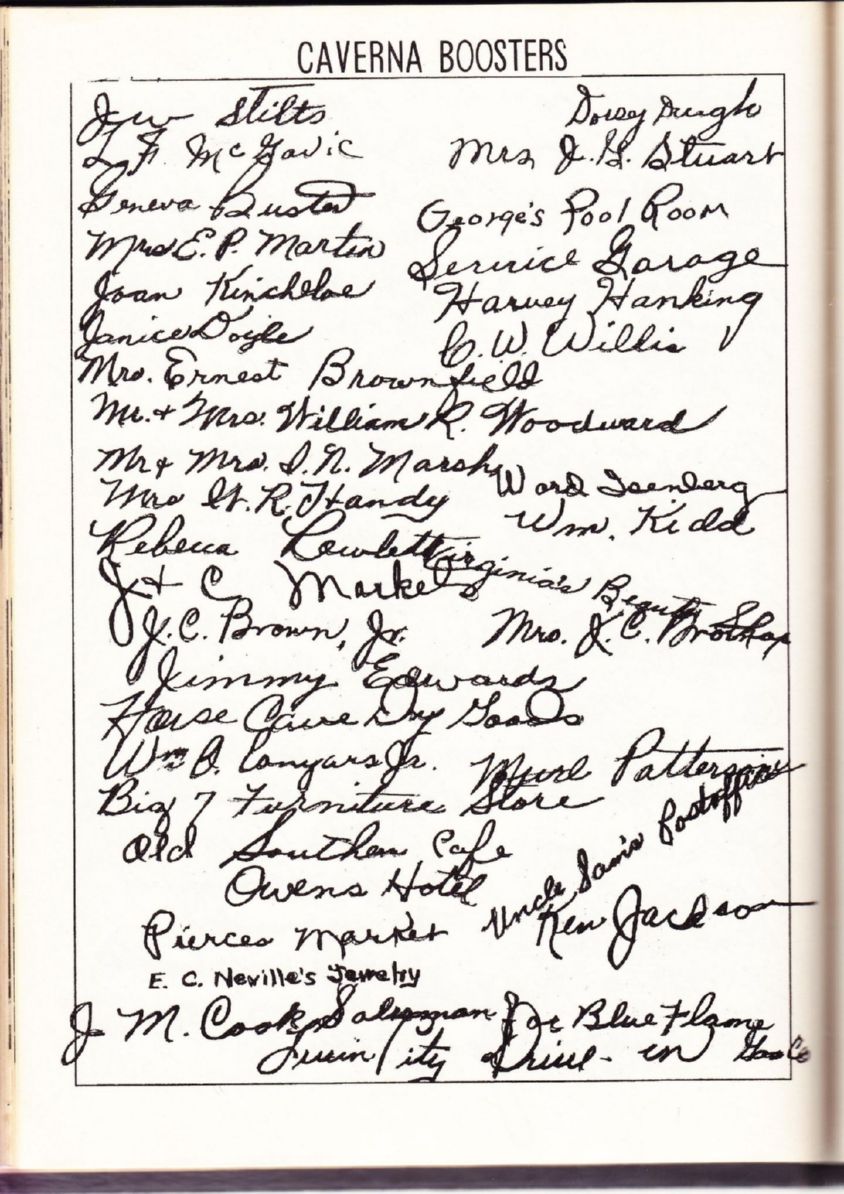 CAVERNA BOOSTERS
J W Stilts
Dorsey
L. F. McGavic
Mrs. J. G. Stuart
Geneva Buster
George's Pool Room
Mrs E. P. Martin
Service Garage
Joan Kinchloe
Harvey Hanking
Janice Doyle
C. W. Willis
Mrs. Ernest Brownfield
Mr. + Mrs. William R. Woodward
Mr + Mrs. I. N. Marsh
Ward Isenberg
Mrs W. R. Handy
Wm. Kidd
Rebecca Rowlett
Virginia's Beauty Shop
J + C Markets
J. C. Brown, Jr.
Mrs. J. C.
Jimmy Edwards
Horse Cave Dry Goods
Wm B. Conyars Jr.
Murl Patterson
Big 7 Furniture Store
Old Southern Cafe
Uncle Sam's Postoffice
Owens Hotel
Ken Jackson
Pierces Market
E. C. Neville's Jewelry
J M. Cook, Salesman for Blue Flame Gas Co
Twin City Drive-in